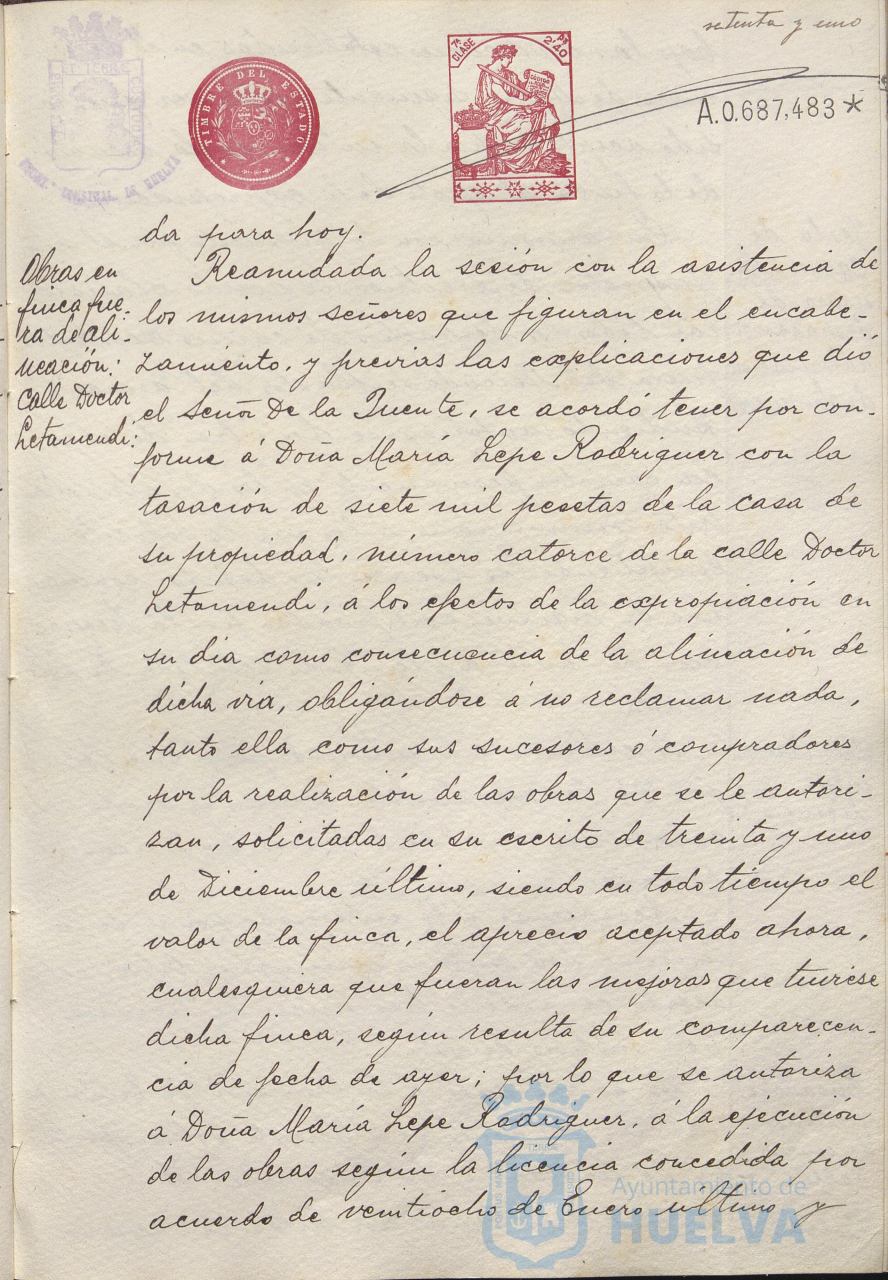 setenta y uno
TIMBRE DEL ESTADO
7ª CLASE
2'40 Ps
A.0.687,483*
da para hoy.
Obras en
finca fue-
ra de ali-
neación:
calle Doctor
Letamendi:
Reanudada la sesión con la asistencia de
los mismos señores que figuran en el encabe-
zamiento, y previas las explicaciones que dió
el Señor De la Fuente, se acordó tener por con-
forme á Doña María Lepe Rodriguez con la
tasación de siete mil pesetas de la casa de
su propiedad, número catorce de la calle Doctor
Letamendi, á los efectos de la expropiación en
su dia como consecuencia de la alineación de
dicha vía, obligándose á no reclamar nada,
tanto ella como sus sucesores ó compradores
por la realización de las obras que se le autori-
zan, solicitadas en su escrito de treinta y uno
de Diciembre último, siendo en todo tiempo el
valor de la finca, el aprecio aceptado ahora,
cualesquiera que fueran las mejoras que tuviese
dicha finca, según resulta de su comparecen-
cia de fecha de ayer; por lo que se autoriza
á Doña María Lepe Rodriguez, á la ejecución
de las obras según la licencia concedida por
acuerdo de veintiocho de Enero último y
Ayuntamiento de
HUELVA